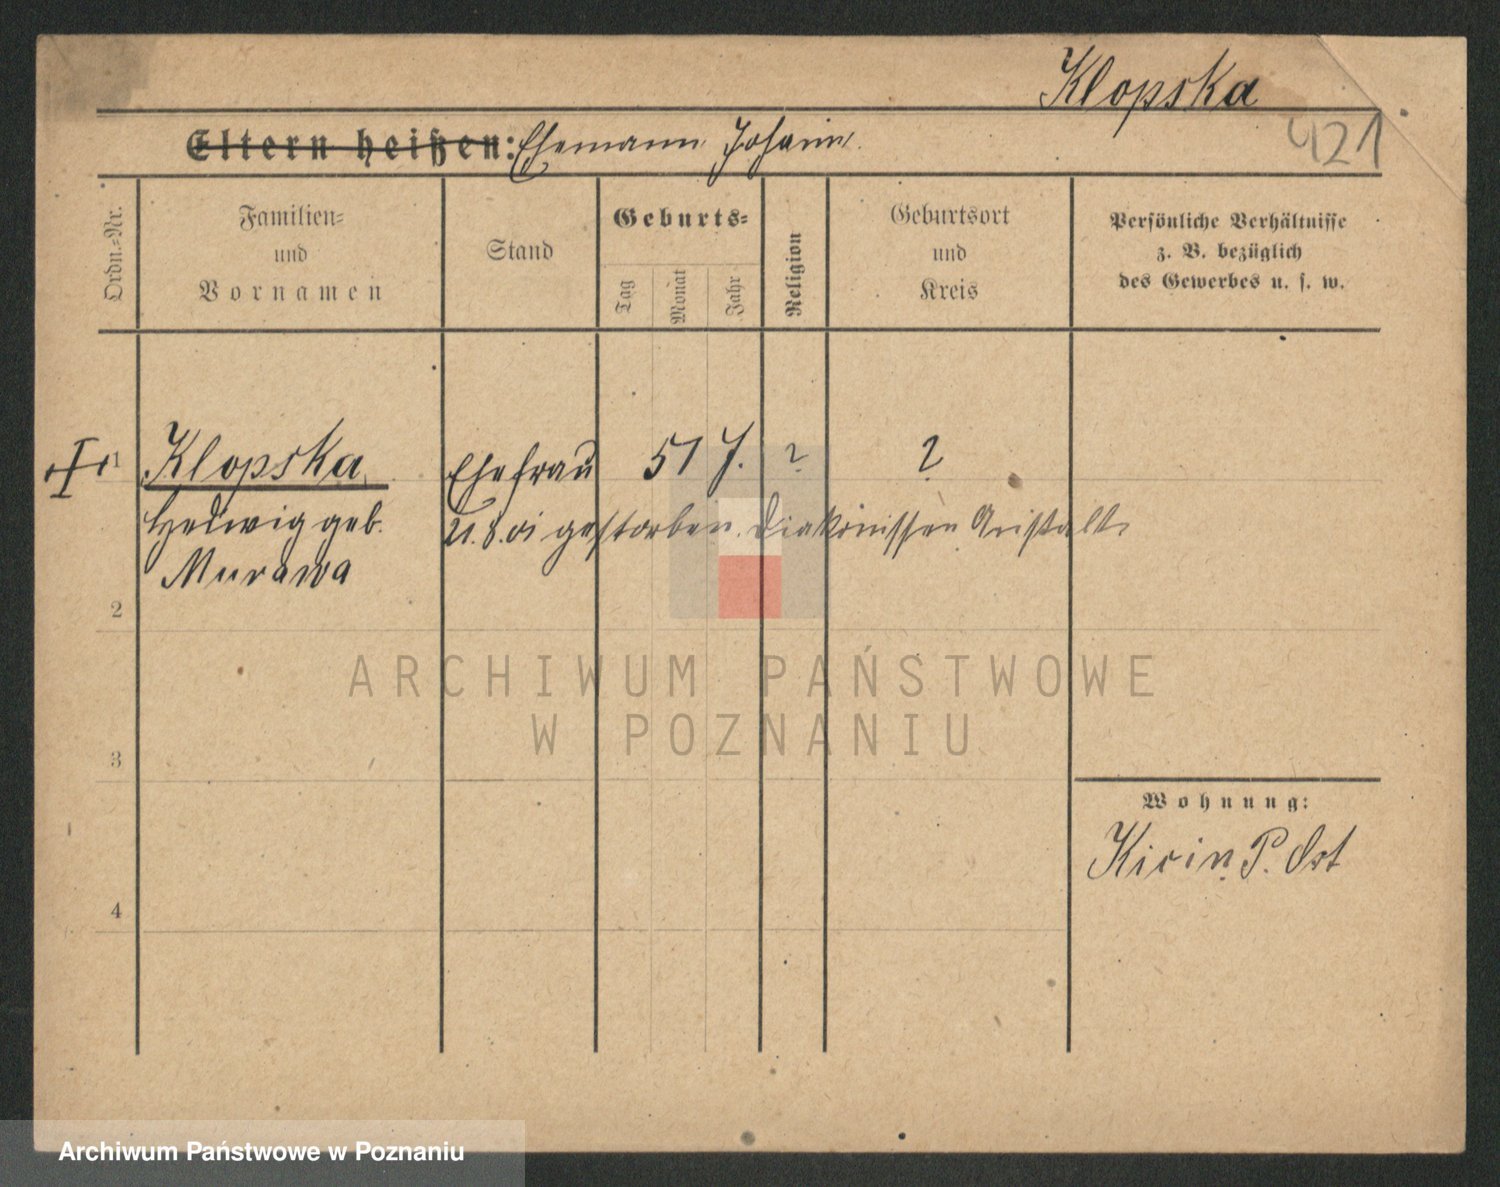 Klopska
421
Eltern heißen: Ehemann Johann.
Ordn.=Nr.
Familien=
und
Vornamen
Stand
Geburts=
Tag
Monat
Jahr
Religion
Geburtsort
und
Kreis
Persönliche Verhältnisse
z. B. bezüglich
des Gewerbes u. s. w.
1 Klopska Ehefrau 51 J. ? ?
Hedwig geb. 21.8.01 gestorben. Diakonissen Anstalt.
Murawa
2
3
4
Wohnung:
P. Ost
ARCHIWUM PAŃSTWOWE
W POZNANIU
Archiwum Państwowe w Poznaniu